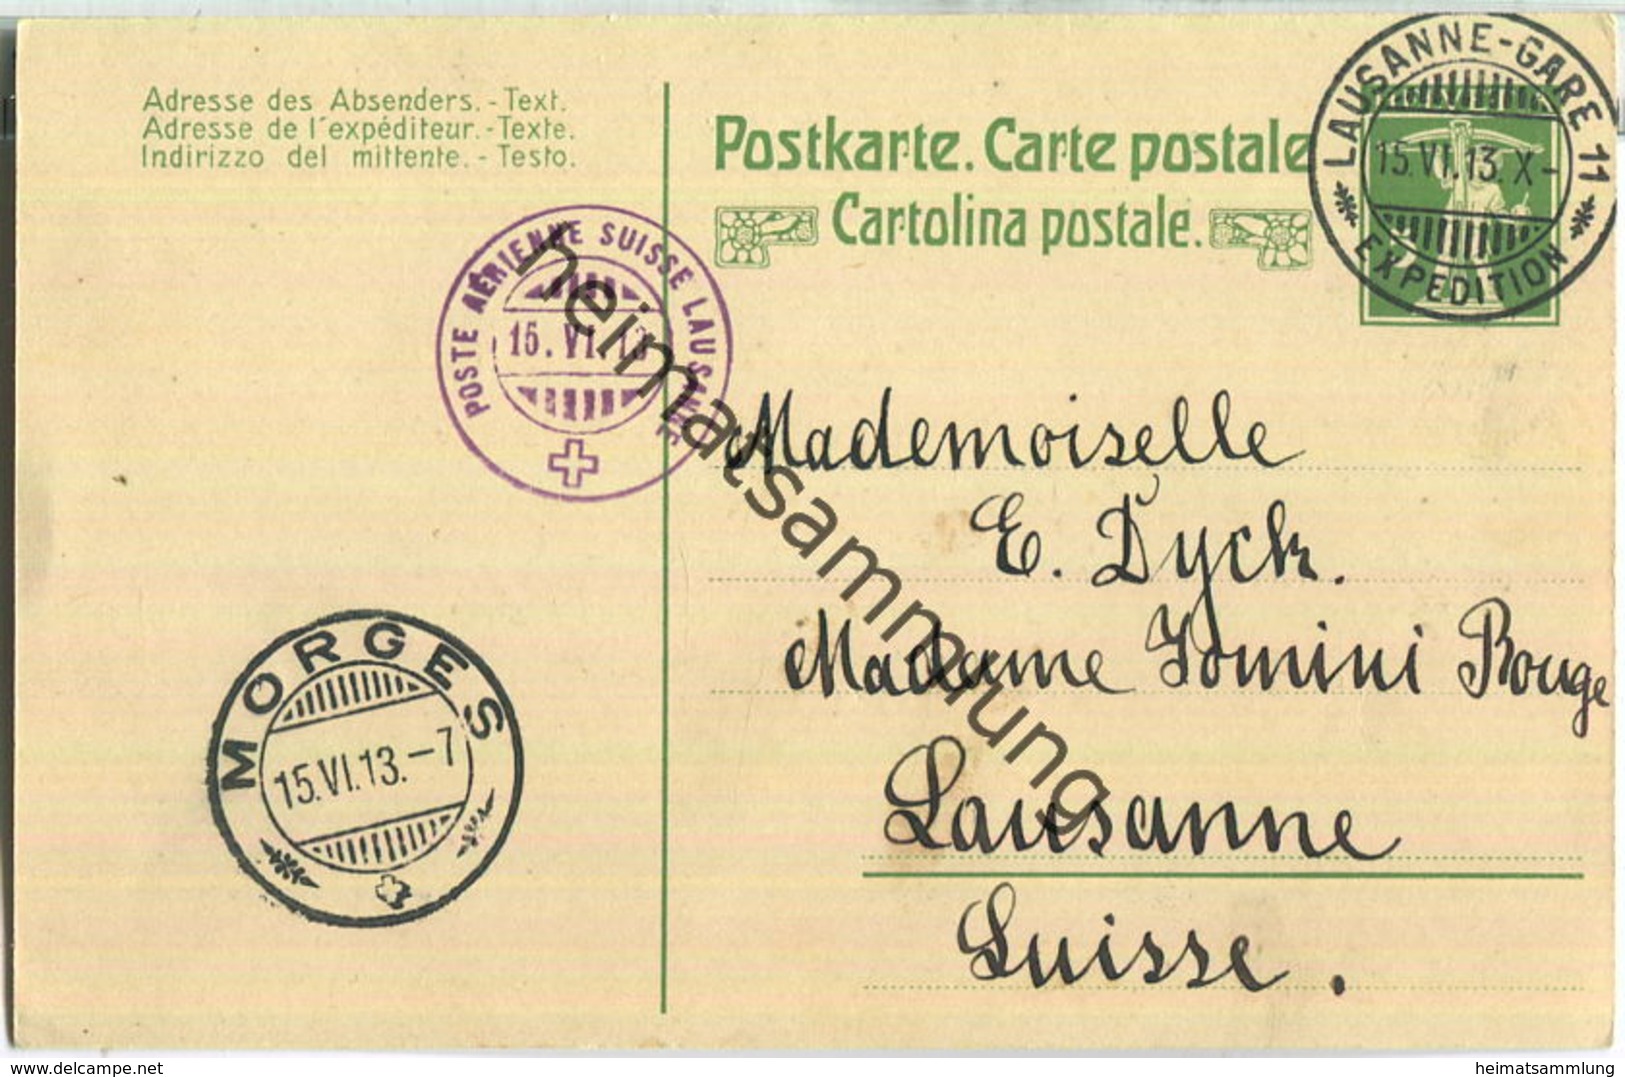 Adresse des Absenders. - Text.
Adresse de l'expéditeur. - Texte.
Indirizzo del mittente. - Testo.
Postkarte. Carte postale
Cartolina postale.
LAUSANNE-GARE 11
15.VI.13.X-
EXPEDITION
5
POSTE AÉRIENNE SUISSE LAUSANNE
15.VI.13
Mademoiselle
E. Dyck.
Madame Jomini Rouge
Lausanne
Suisse.
MORGES
15.VI.13.-7
heimatsammlung
delcampe.net
heimatsammlung